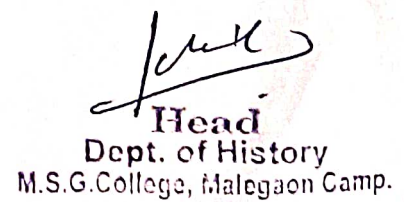 Head
Dept. of History
M.S.G.College, Malegaon Camp.